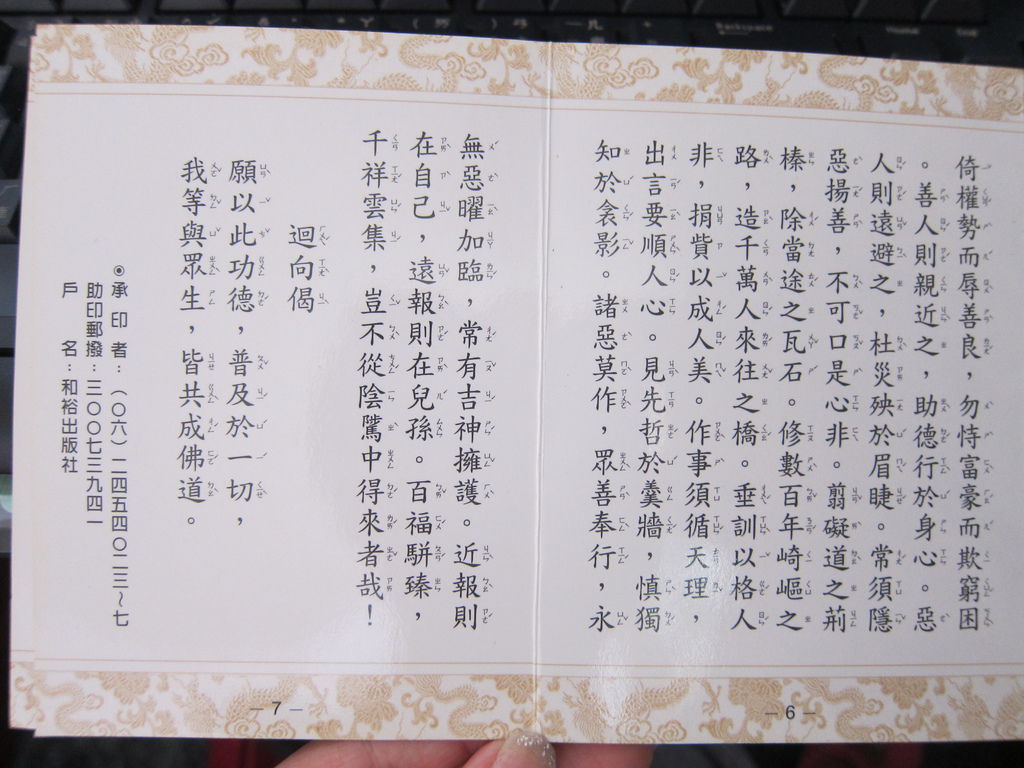 倚權勢而辱善良，勿恃富豪而欺窮困
。善人則親近之，助德行於身心。惡
人則遠避之，杜災殃於眉睫。常須隱
惡揚善，不可口是心非。翦礙道之荊
榛，除當途之瓦石。修數百年崎嶇之
路，造千萬人來往之橋。垂訓以格人
非，捐貲以成人美。作事須循天理，
出言要順人心。見先哲於羹牆，慎獨
知於衾影。諸惡莫作，眾善奉行，永
－6－
無惡曜加臨，常有吉神擁護。近報則
在自己，遠報則在兒孫。百福駢臻，
千祥雲集，豈不從陰騭中得來者哉！
迴向偈
願以此功德，普及於一切，
我等與眾生，皆共成佛道。
◉承印者：（〇六）二四五四〇二三～七
助印郵撥：三〇〇七三九四一
戶名：和裕出版社
－7－